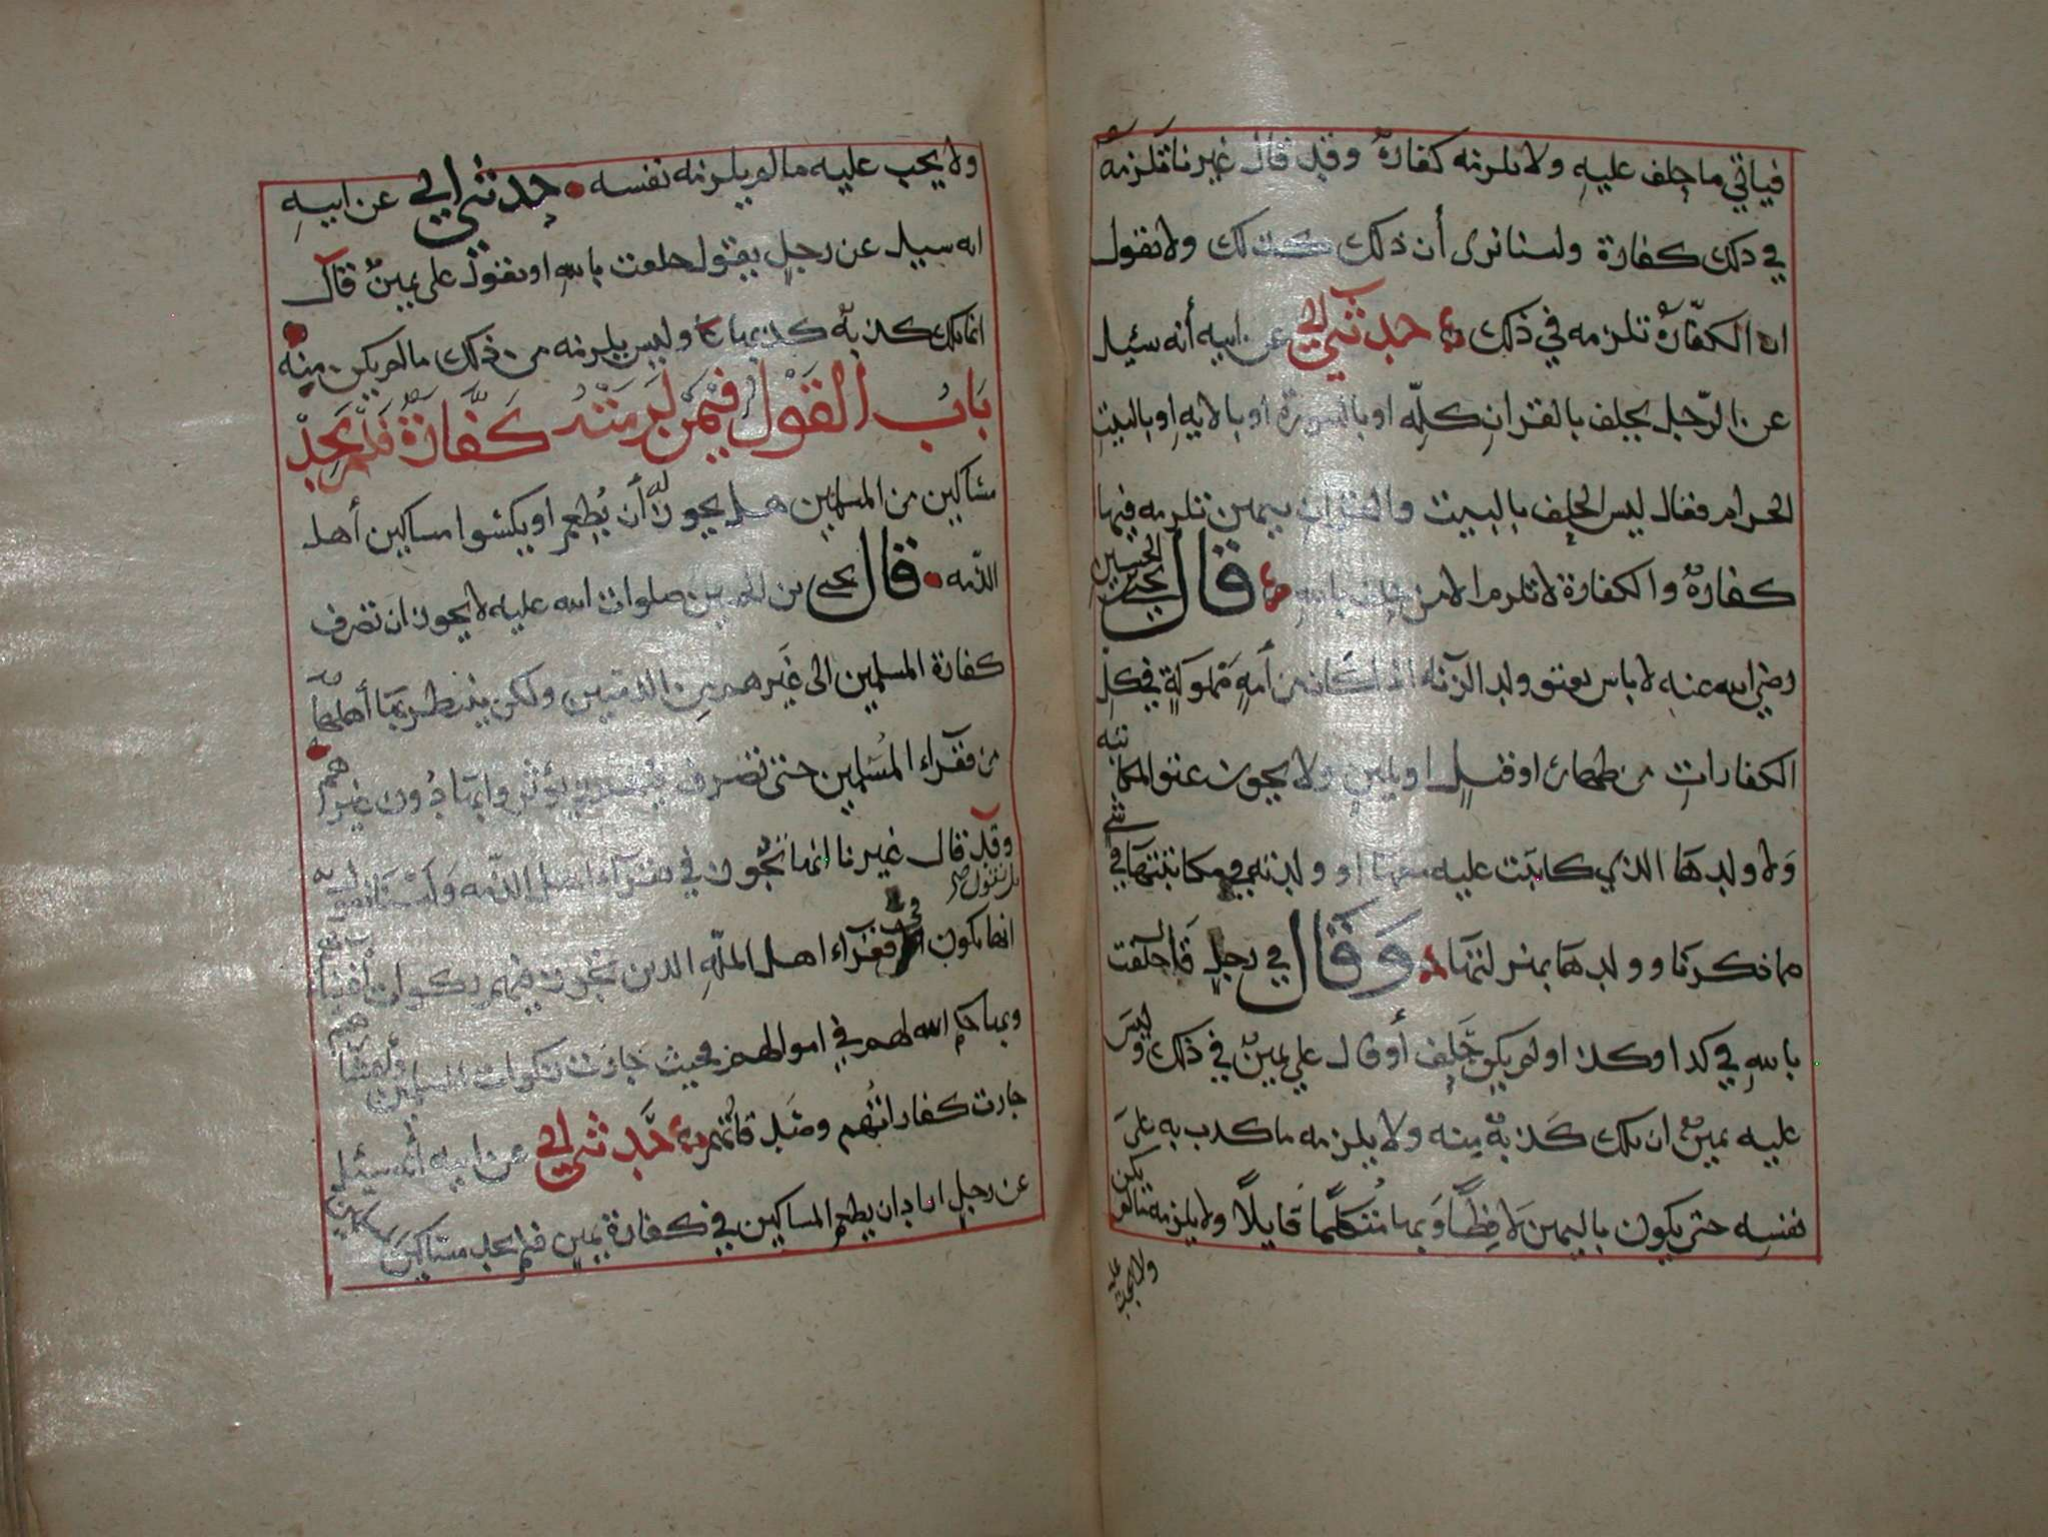 فياتي ما حلف عليهِ ولا تلزمه كفارةٌ وقد قال غيرنا تلزمه
في ذلك كفارة ولسنا نرى أن ذلك كذلك ولا نقول
ان الكفّارةٌ تلزمه في ذلك حدثني ابي عن ابيه أنه سئيل
عن الرّجل يحلف بالقرانِ كلِّه او بالسورة او بالايهِ او بالبيت
الحرام فقال ليس الحلف بالبيت والقران بيمين تلزمه فيها
كفارةٌ والكفارة لا تلزم الا من حلف بالله قال يحيى بن الحسين
رضي الله عنه لا باس بعتق ولد الزنا اذا كان من أمةٍ مملوكةٍ في كل
الكفاراتِ من ظهار او قتلٍ او يمينٍ ولا يجوز عتق المكاتبه
وَلا ولدهَا الذي كاتبت عليه معها او ولدته في مكاتبتها في شي
مما ذكرنا وولدها بمنزلتها وَقَال في رجلٍ قال حلفت
باللهِ في كذا وكذا ولم يكن حَلِف أو قال علي يمينٌ في ذلك وليسَ
عليه يمينٌ ان تلك كَذبةٌ مِنه ولا يلزمه ما كذب به على
نفسِه حتى يكون باليمين لَافِظًا وَبها مُتكلمًا قَايلًا ولا يلزمه ما لم يكن
ولا يجب عليه
ولا يجب عليه ما لم يلزمه نفسه حدثني ابي عن ابيهِ
انه سيل عن رجلٍ يقول حلفت باللهِ او يقول علي يمينٌ قال
انما تلك كذبةٌ كذبها وليس يلزمه من ذلك ما لم يكن مِنه
بَابُ القَوْل فيمَن لَزمَتْهُ كَفَّارَةٌ فَلَمْ يَجِدْ
مسَاكين من المسلمين هل يجوز له أن يُطعِم او يكسُوا مساكين أهل
الذمه قال يحيى بن الحسين صلوات الله عليه لا يجوز ان تصرف
كفارة المسلمين الى غَيرهم مِن الذميين ولكن ينتظر بهَا أهلها
من فقرآء المُسْلمين حتى تصرف فيهم بها دُون غيرهم
وقد قال غيرنا انها تجُوز في فقرآء اهل الذّمه وَلسْنَا نقول به
بل نقول
انها تكون في فقرآء اهل الملّةِ الذين تجوز فيهم زكوات أغنيا
وبما حكم الله لهم في اموالهم فحيث جازت زكوات المسلمين
جازت كفاراتُهم حَدّثني ابي عن ابيه أنه سئيل
عن رجلٍ اراد ان يطعم المساكين في كفارة يمينٍ فلم يجد مسَاكينَ